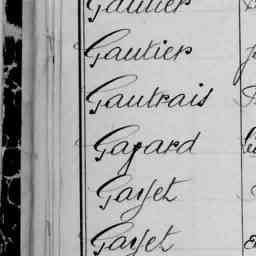 Gautier
Gautier
Gautrais
Gayard
Gayet
Gayet